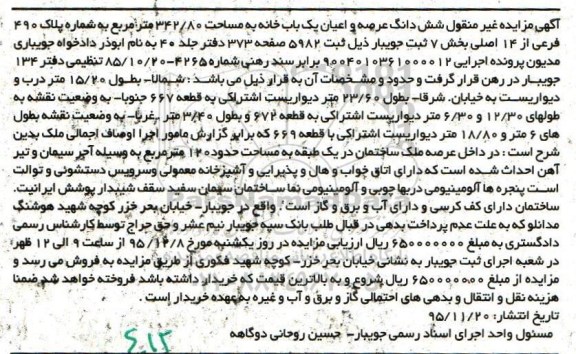 آگهی مزایده غیر منقول شش دانگ عرصه و اعیان یک باب خانه به مساحت ۳۴۲/۸۰ متر مربع به شماره پلاک ۴۹۰
فرعی از ۱۴ اصلی بخش ۷ ثبت جویبار ذیل ثبت ۵۹۸۲ صفحه ۳۷۳ دفتر جلد ۴۰ به نام ابوذر دادخواه جویباری
مدیون پرونده اجرایی ۹۰۰۴۰۱۰۳۶۱۰۰۰۰۱۲ برابر سند رهنی شماره ۴۲۶۵-۸۵/۱۰/۲۰ تنظیمی دفتر ۱۳۴
جویبار در رهن قرار گرفت و حدود و مشخصات آن به قرار ذیل می باشد : شمالا- بطول ۱۵/۲۰ متر درب و
دیواریست به خیابان. شرقا- بطول ۲۳/۶۰ متر دیواریست اشتراکی به قطعه ۶۶۷ جنوبا- به وضعیت نقشه به
طولهای ۱۲/۳۰ و ۶/۳۰ متر دیواریست اشتراکی به قطعه ۶۷۲ و بطول ۳/۴۰ متر .غربا- به وضعیت نقشه بطول
های ۶ متر و ۱۸/۸۰ متر دیواریست اشتراکی با قطعه ۶۶۹ که برابر گزارش مامور اجرا اوصاف اجمالی ملک بدین
شرح است : در داخل عرصه ملک ساختمان در یک طبقه به مساحت حدود ۱۲۰ متر مربع به وسیله آجر سیمان و تیر
آهن احداث شده است که دارای اتاق خواب و هال و پذیرایی و آشپزخانه معمولی و سرویس دستشویی و توالت
است پنجره ها آلومینیومی دربها چوبی و آلومینیومی نما ساختمان سیمان سفید سقف شیبدار پوشش ایرانیت.
ساختمان دارای کف کرسی و دارای آب و برق و گاز است . واقع در جویبار- خیابان بحر خزر کوچه شهید هوشنگ
مدانلو که به علت عدم پرداخت بدهی در قبال طلب بانک سپه جویبار نیم عشر و حق حراج توسط کارشناس رسمی
دادگستری به مبلغ ۶۵۰۰۰۰۰۰۰ ریال ارزیابی مزایده در روز یکشنبه مورخ ۹۵/۱۲/۸ از ساعت ۹ الی ۱۲ ظهر
در شعبه اجرای ثبت جویبار به نشانی خیابان بحر خزر- کوچه شهید فکوری از طریق مزایده به فروش می رسد و
مزایده از مبلغ ۶۵۰۰۰۰۰۰۰ ریال شروع و به بالاترین قیمت که خریدار داشته باشد فروخته خواهد شد ضمنا
هزینه نقل و انتقال و بدهی های احتمالی گاز و برق و آب و غیره به عهده خریدار است .
تاریخ انتشار: ۹۵/۱۱/۲۰
مسئول واحد اجرای اسناد رسمی جویبار- حسین روحانی دوگاهه